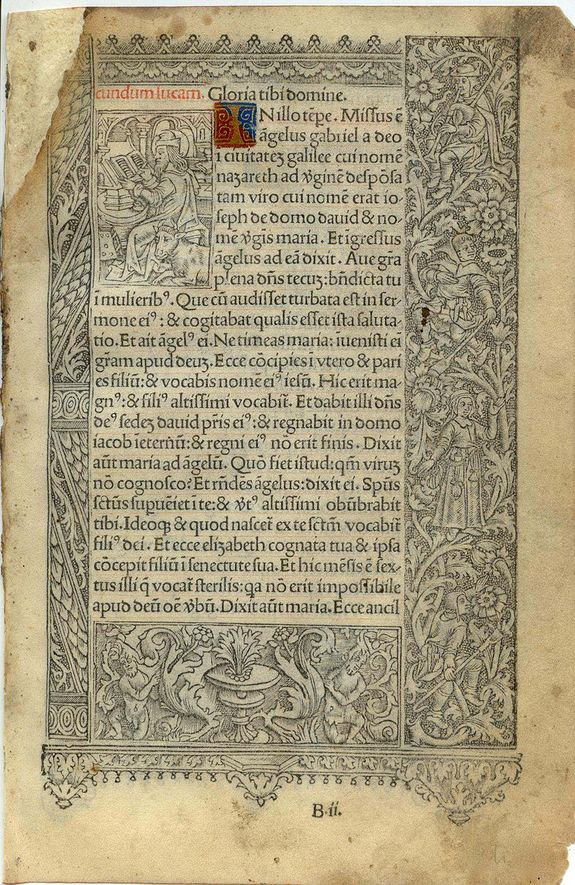 cundum lucam. Gloria tibi domine.
INillo tēpe. Missus ē
āgelus gabriel a deo
ī ciuitateꝫ galilee cui nomē
naꝫareth ad v̄ginē despōsa
tam viro cui nomē erat io-
seph de domo dauid & no-
mē v̄gīs maria. Et īgressus
āgelus ad eā dixit. Aue gr̄a
plena dn̄s tecuꝫ: bn̄dicta tu
ī mulieribꝰ. Que cū audisset turbata est in ser-
mone eiꝰ: & cogitabat qualis esset ista saluta-
tio. Et ait āgelꝰ ei. Ne timeas maria: īuenisti ei
gr̄am apud deuꝫ. Ecce cōcipies ī vtero & pari
es filiū: & vocabis nomē eiꝰ iesū. Hic erit ma-
gnꝰ: & filiꝰ altissimi vocabit̄. Et dabit illi dn̄s
deꝰ sedeꝫ dauid pr̄is eiꝰ: & regnabit in domo
iacob īeternū: & regni eiꝰ nō erit finis. Dixit
aūt maria ad āgelū. Quō fiet istud: qm̄ viruꝫ
nō cognosco? Et rn̄dēs āgelus: dixit ei. Spūs
sctūs supueīet ī te: & v̄tꝰ altissimi obūbrabit
tibi. Ideoqꝫ & quod nascet̄ ex te sctm̄ vocabit̄
filiꝰ dei. Et ecce eliꝫabeth cognata tua & ipsa
cōcepit filiū ī senectute sua. Et hic mēsis ē sex-
tus illi q̄ vocat̄ sterilis: qa nō erit impossibile
apud deū oē v̄bū. Dixit aūt maria. Ecce ancil
B.ii.